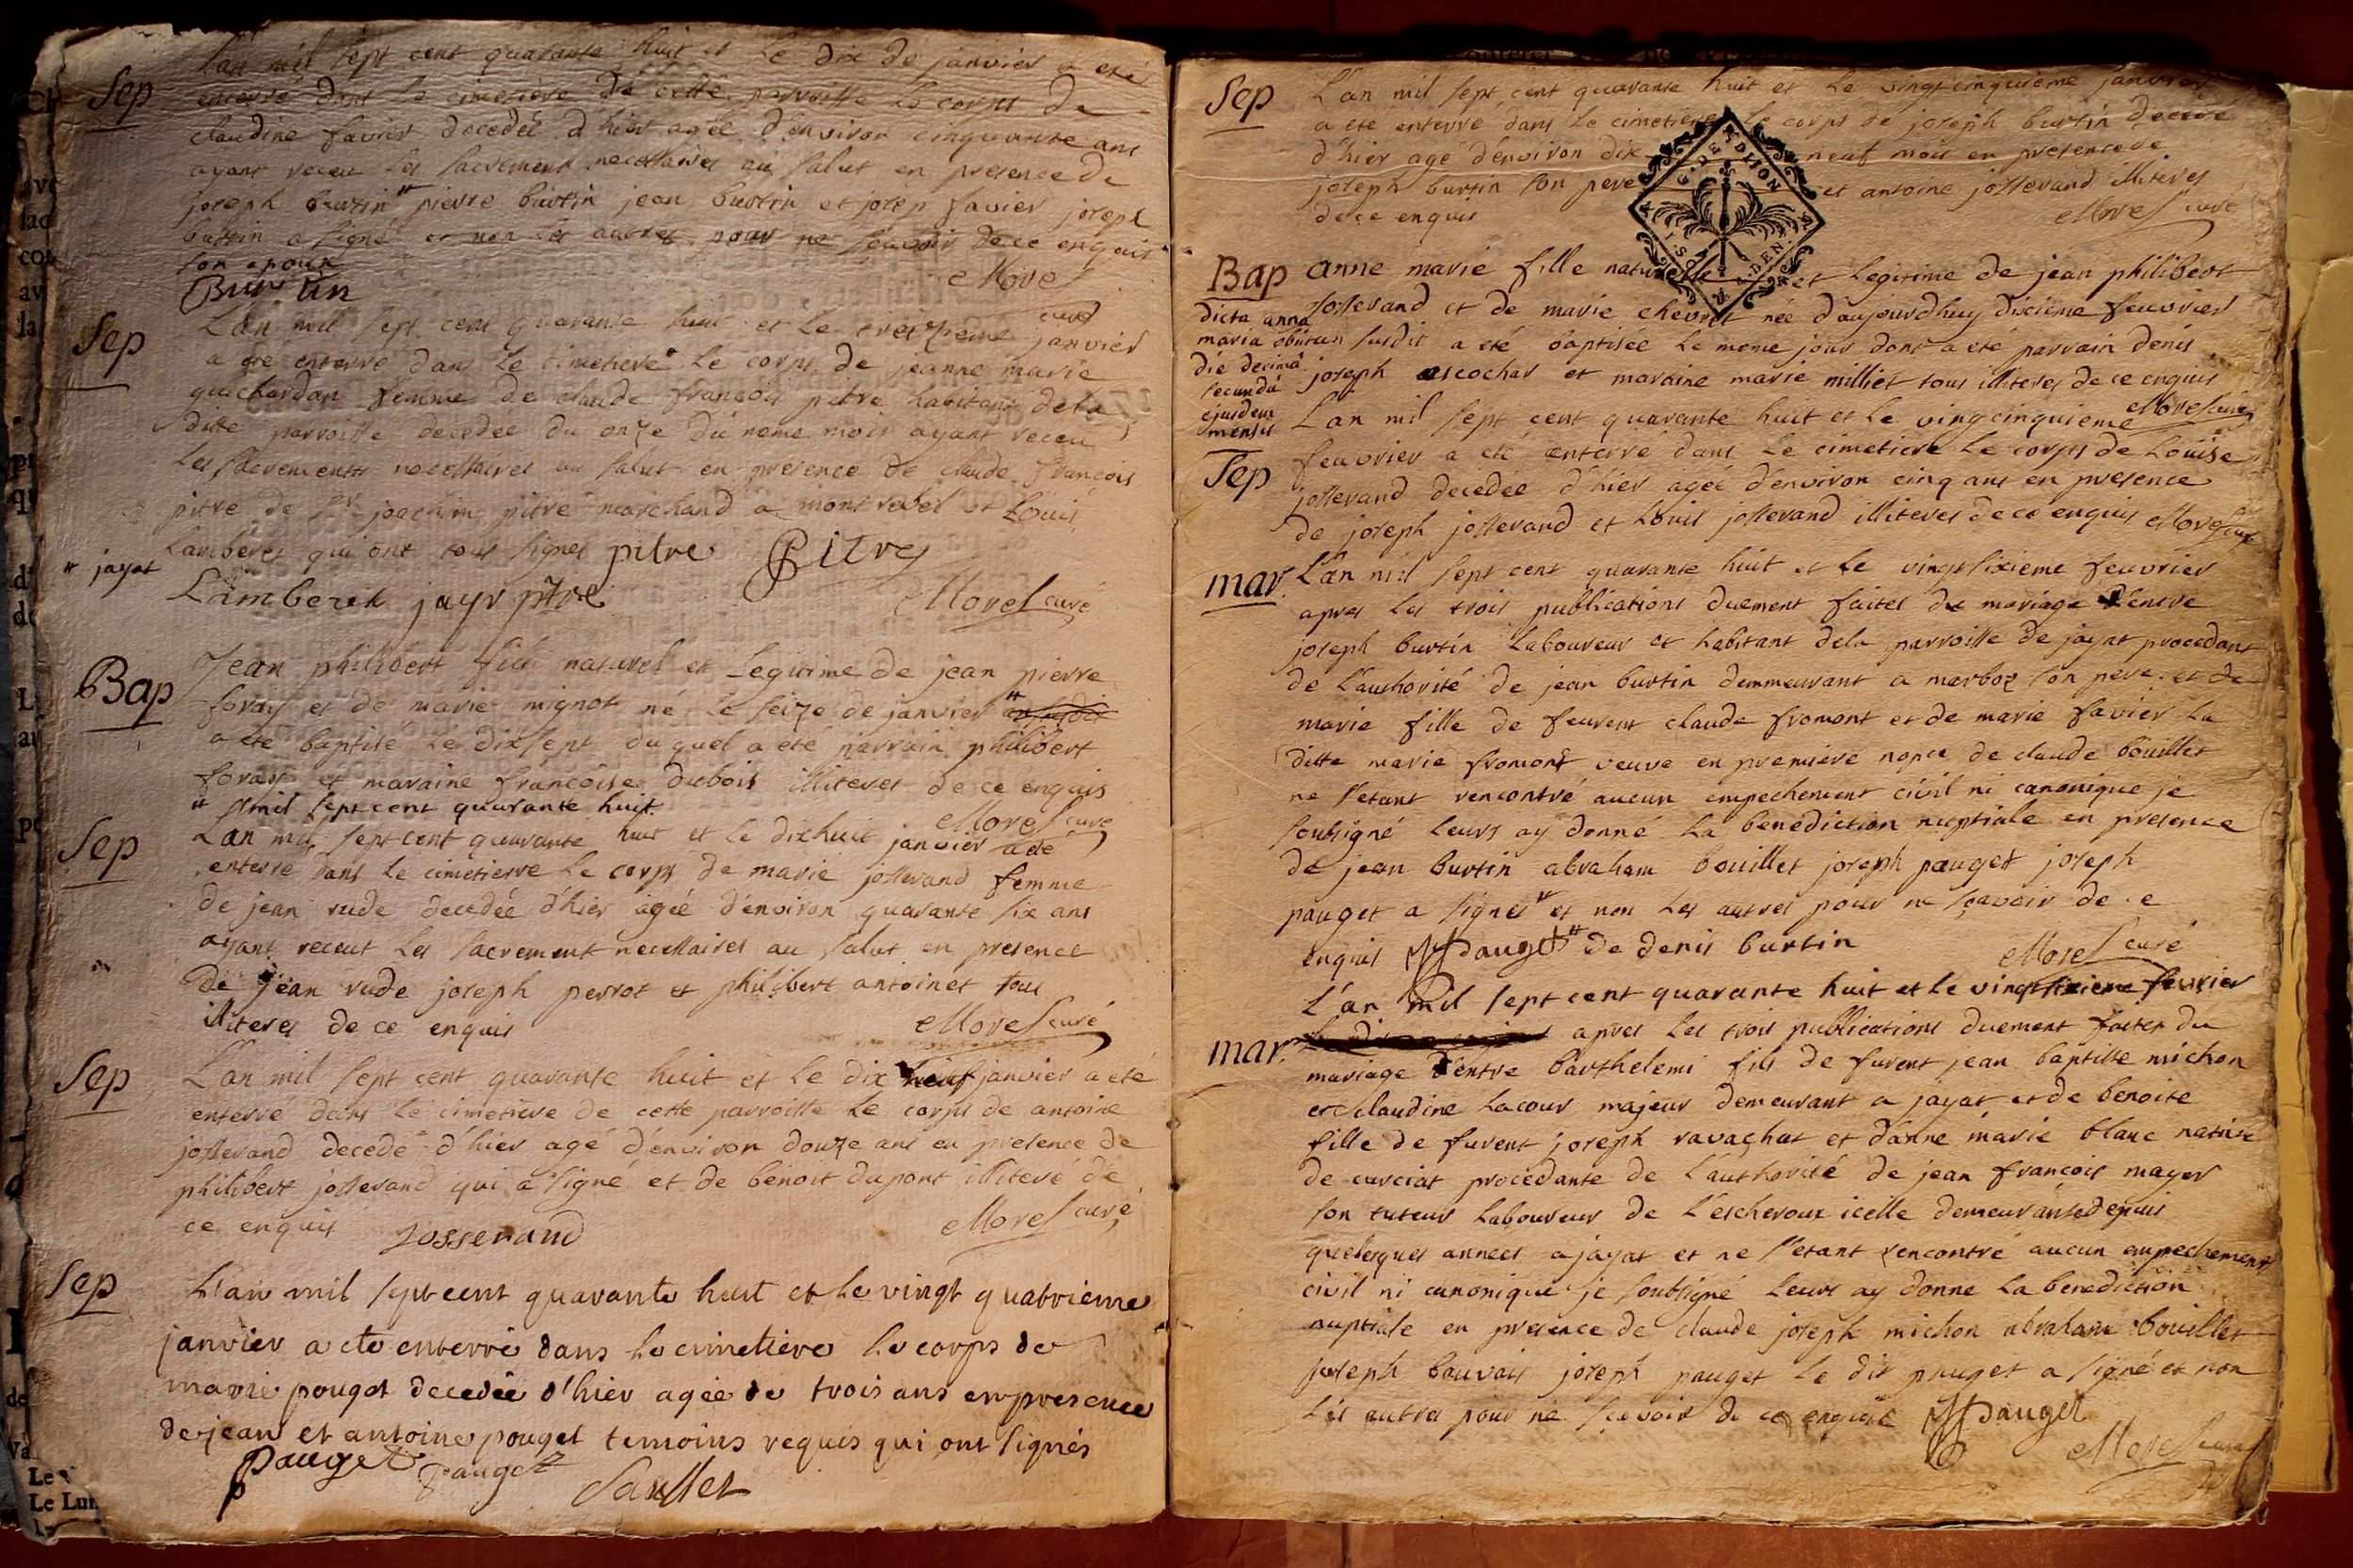 Sep
L'an mil sept cent quarante huit et le dix de janvier a eté
enterré dans le cimetière de cette parroisse le corps de
claudine favier decedée d'hier agée d'environ cinquante ans
ayant receu les sacrement necessaires au salut en presence de
joseph burtin # pierre burtin jean burtin et josep favier joseph
burtin a signé et non les autres pour ne sçavoir de ce enquis
son epoux
Burtin Morel curé
Sep
L'an mil sept cent quarante huit et le treizieme janvier
a ete enterré dans le cimetiere # le corps de jeanne marie
guichardan femme de claude françois pitre habitant de la
ditte parroisse decedée du onze du meme mois ayant receu
les sacrements necessaires au salut en presence de claude françois
pitre de sr joachim pitre marchand a montrevel et Louis
Lamberet qui ont tous signes pitre Pitre
# jayat
Lamberet jayr ptre Morel curé
Bap
Jean philibert fils naturel et legitime de jean pierre
foray et de marie mignot né le seize de janvier #
a ete baptisé le dix sept duquel a eté parrain philibert
foray et maraine françoise dubois illiteres de ce enquis
# mil sept cent quarante huit Morel curé
Sep
L'an mil sept cent quarante huit et le dix huit janvier a eté
enterré dans le cimetierre le corps de marie josserand femme
de jean rude decedée d'hier agée d'environ quarante six ans
ayant receut les sacrement necessaires au salut en presence
de jean rude joseph perrot et philibert antoinet tous
illiteres de ce enquis Morel curé
Sep
L'an mil sept cent quarante huit et le dix neuf janvier a eté
enterré dans le cimetiere de cette parroisse le corps de antoine
josserand decedé d'hier agé d'environ douze ans en presence de
philibert josserand qui a signé et de benoit dupont illiteré de
ce enquis Josserand Morel curé
Sep
L'an mil sept cent quarante huit et le vingt quatrieme
janvier a ete enterré dans le cimetiere le corps de
marie pouget decedée d'hier agée de trois ans en presence
de jean et antoine pouget temoins requis qui ont signés
Pauget Pauget
Sep
L'an mil sept cent quarante huit et le vingt cinquieme janvier
a eté enterré dans le cimetiere le corps de joseph burtin decedé
d'hier agé d'environ dix neuf mois en presence de
joseph burtin son pere et antoine josserand illiteres
de ce enquis Morel curé
G. DE DIJON
Bap
anne marie fille naturelle et legitime de jean philibert
josserand et de marie chevret née d'aujourdhuy dixieme feuvrier
susdit a eté baptisée le meme jour dont a eté parrain denis
joseph cochar et maraine marie milliet tous illiteres de ce enquis
Morel curé
dicta anna
maria obiit
die decimâ
secundâ
ejusdem
mensis
Sep
L'an mil sept cent quarante huit et le vingcinquieme
feuvrier a eté enterré dans le cimetiere le corps de Louise
josserand decédée d'hier agée d'environ cinq ans en presence
de joseph josserand et Louis josserand illiteres de ce enquis Morel curé
mar.
L'an mil sept cent quarante huit et le vingt sixieme feuvrier
apres les trois publications duement faites du mariage d'entre
joseph burtin Laboureur et habitant de la parroisse de jayat procedant
de l'authorité de jean burtin demmeurant a marboz son pere et de
marie fille de feurent claude fromont et de marie favier la
ditte marie fromont veuve en premiere nopce de claude bouillet
ne s'etant rencontré aucun empechement civil ni canonique je
soubsigné leurs ay donné la bénédiction nuptiale en presence
de jean burtin abraham bouillet joseph pauget joseph
pauget a signer # et non les autres pour ne sçavoir de ce
enquis JPauget # de denis burtin Morel curé
mar.
L'an mil sept cent quarante huit et le vingt sixieme fevrier
apres les trois publications duement faites du
mariage d'entre barthelemi fils de furent jean baptiste michon
et claudine Lacour majeur demeurant a jayat et de benoite
fille de furent joseph ravachat et d'anne marie blanc native
de curciat procedante de l'authorité de jean françois mayer
son tuteur laboureur de l'escheroux icelle demeurante depuis
quelesques annees a jayat et ne s'etant rencontré aucun empechement
civil ni canonique je soubsigné leurs ay donné la benediction
nuptiale en presence de claude joseph michon abraham bouillet
joseph bauvais joseph pauget le dit pauget a signé et non
les autres pour ne sçavoir de ce enquis JPauget
Morel curé